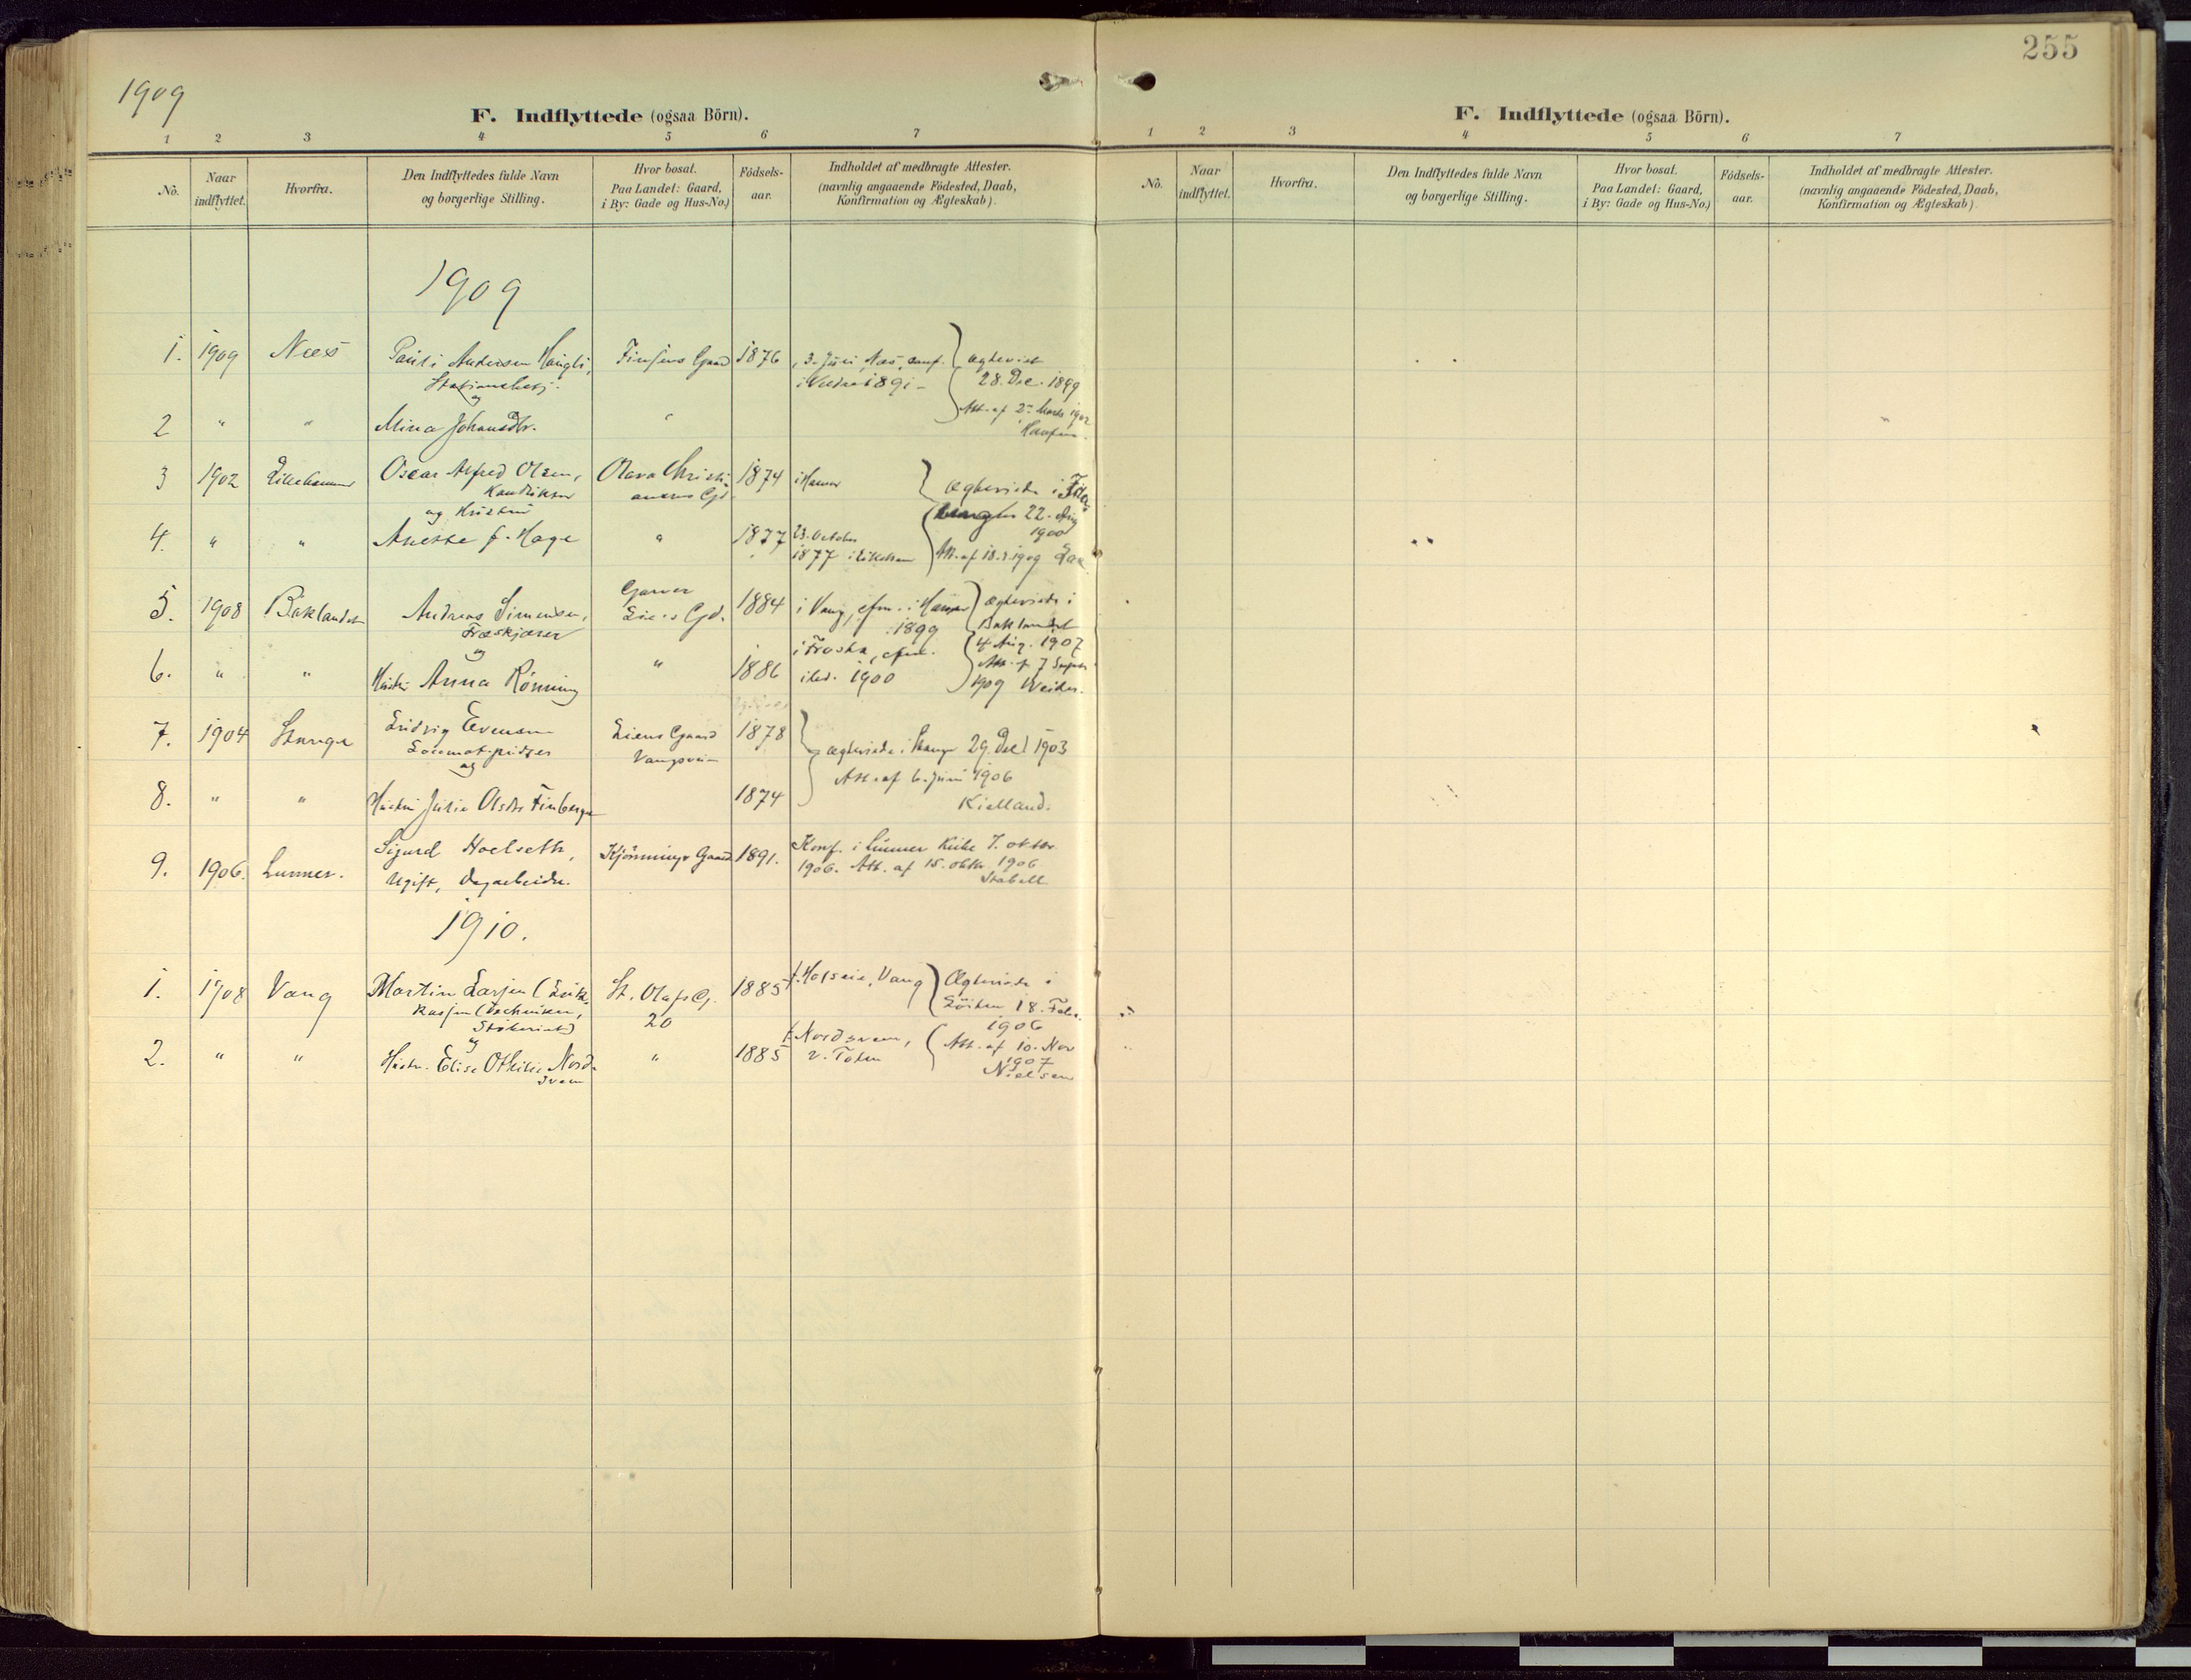 1909
255
F. Indflyttede (ogsaa Börn).
1 2 3 4 5 6 7
No.
Naar indflyttet.
Hvorfra.
Den Indflyttedes fulde Navn og borgerlige Stilling.
Hvor bosat. Paa Landet: Gaard, i By: Gade og Hus-No.)
Födsels-aar.
Indholdet af medbragte Attester. (navnlig angaaende Födested, Daab, Konfirmation og Ægteskab).
1909
1. 1909 Næs Andersen Gaard 1876 3. Juni Næs, conf.
i 1891 -
28. Dec. 1899
og
2 " " Mina Johansdtr. " Att. af 2 Marts 1902
3 1902 Lillehammer Oscar Alfred Olsen, Olava Christi- 1874 i Hamar
anens Gd. Ægteviede i
og Hustru 22. Aug
1900
4. " " Anette f. Hage " 1877 23. October
1877 i Lilleham Att. af 18.2.1909
5. 1908 Baklandet Andreas Simensen, Garver Lies Gd. 1884 i Vang, cfm. i Hamar 1899
Ægteviede i Baklandet
4. Aug. 1907
og
6. " " Hustru Anna Rönning " 1886 i Frosta, cfm. ibd. 1900
Att. f. 7
1909 Weider.
7. 1904 Stange Ludvig Evensen Liens Gaard 1878
Locomotivpudser Vangsvein
Ægteviede i Stange 29. Dec 1903
og Att. af 6. Juni 1906
8. " " Hustru Julie Olsdtr Finberget 1874
Kielland.
9. 1906. Lunner. Sigurd Hoelseth, Kjönnings Gaard 1891. Konf. i Lunner Kirke 7. oktbr
Ugift, dagarbeider. 1906. Att. af 15. oktbr. 1906
Stabell
1910.
1. 1908 Vang Martin Larsen (Erik- St. Olafs G. 1885 f. Holseie, Vang Ægteviede i
20 Löiten 18. Febr.
og 1906
2. " " Hustr. Elise Othilie Nord- " 1885 f. Nordsveen, Att. af 10. Nov
sveen v. Toten 1907
Nielsen
F. Indflyttede (ogsaa Börn).
1 2 3 4 5 6 7
No.
Naar indflyttet.
Hvorfra.
Den Indflyttedes fulde Navn og borgerlige Stilling.
Hvor bosat. Paa Landet: Gaard, i By: Gade og Hus-No.)
Födsels-aar.
Indholdet af medbragte Attester. (navnlig angaaende Födested, Daab, Konfirmation og Ægteskab).